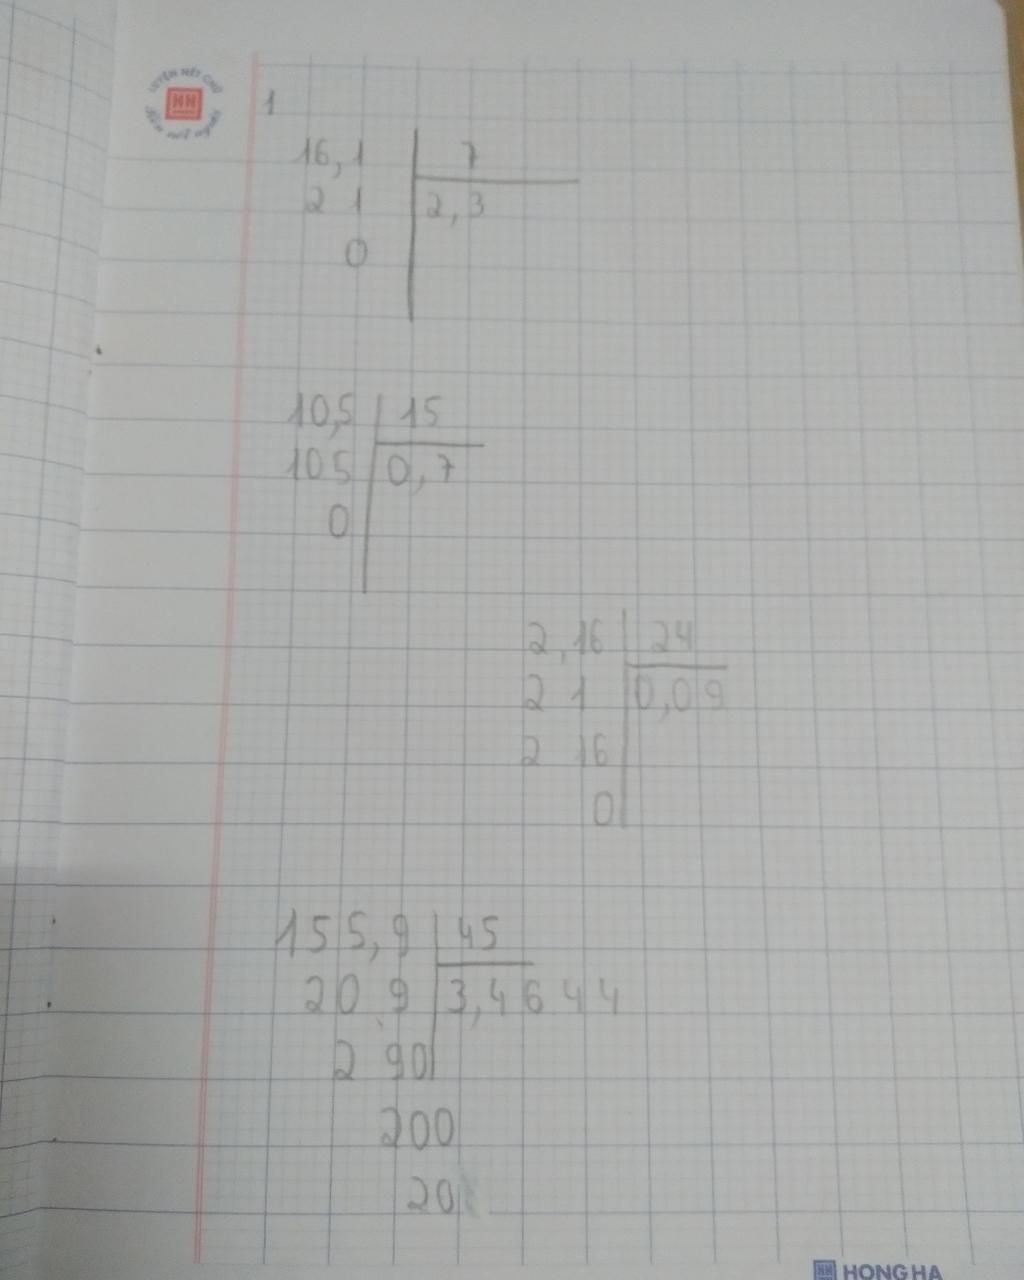 LUYỆN NÉT CHỮ
HH
Rèn nết người
1
16,1 7
21 2,3
0
10,5 15
105 0,7
0
2,16 24
21 0,09
216
0
155,9 45
209 3,4644
290
200
20
HH HONG HA